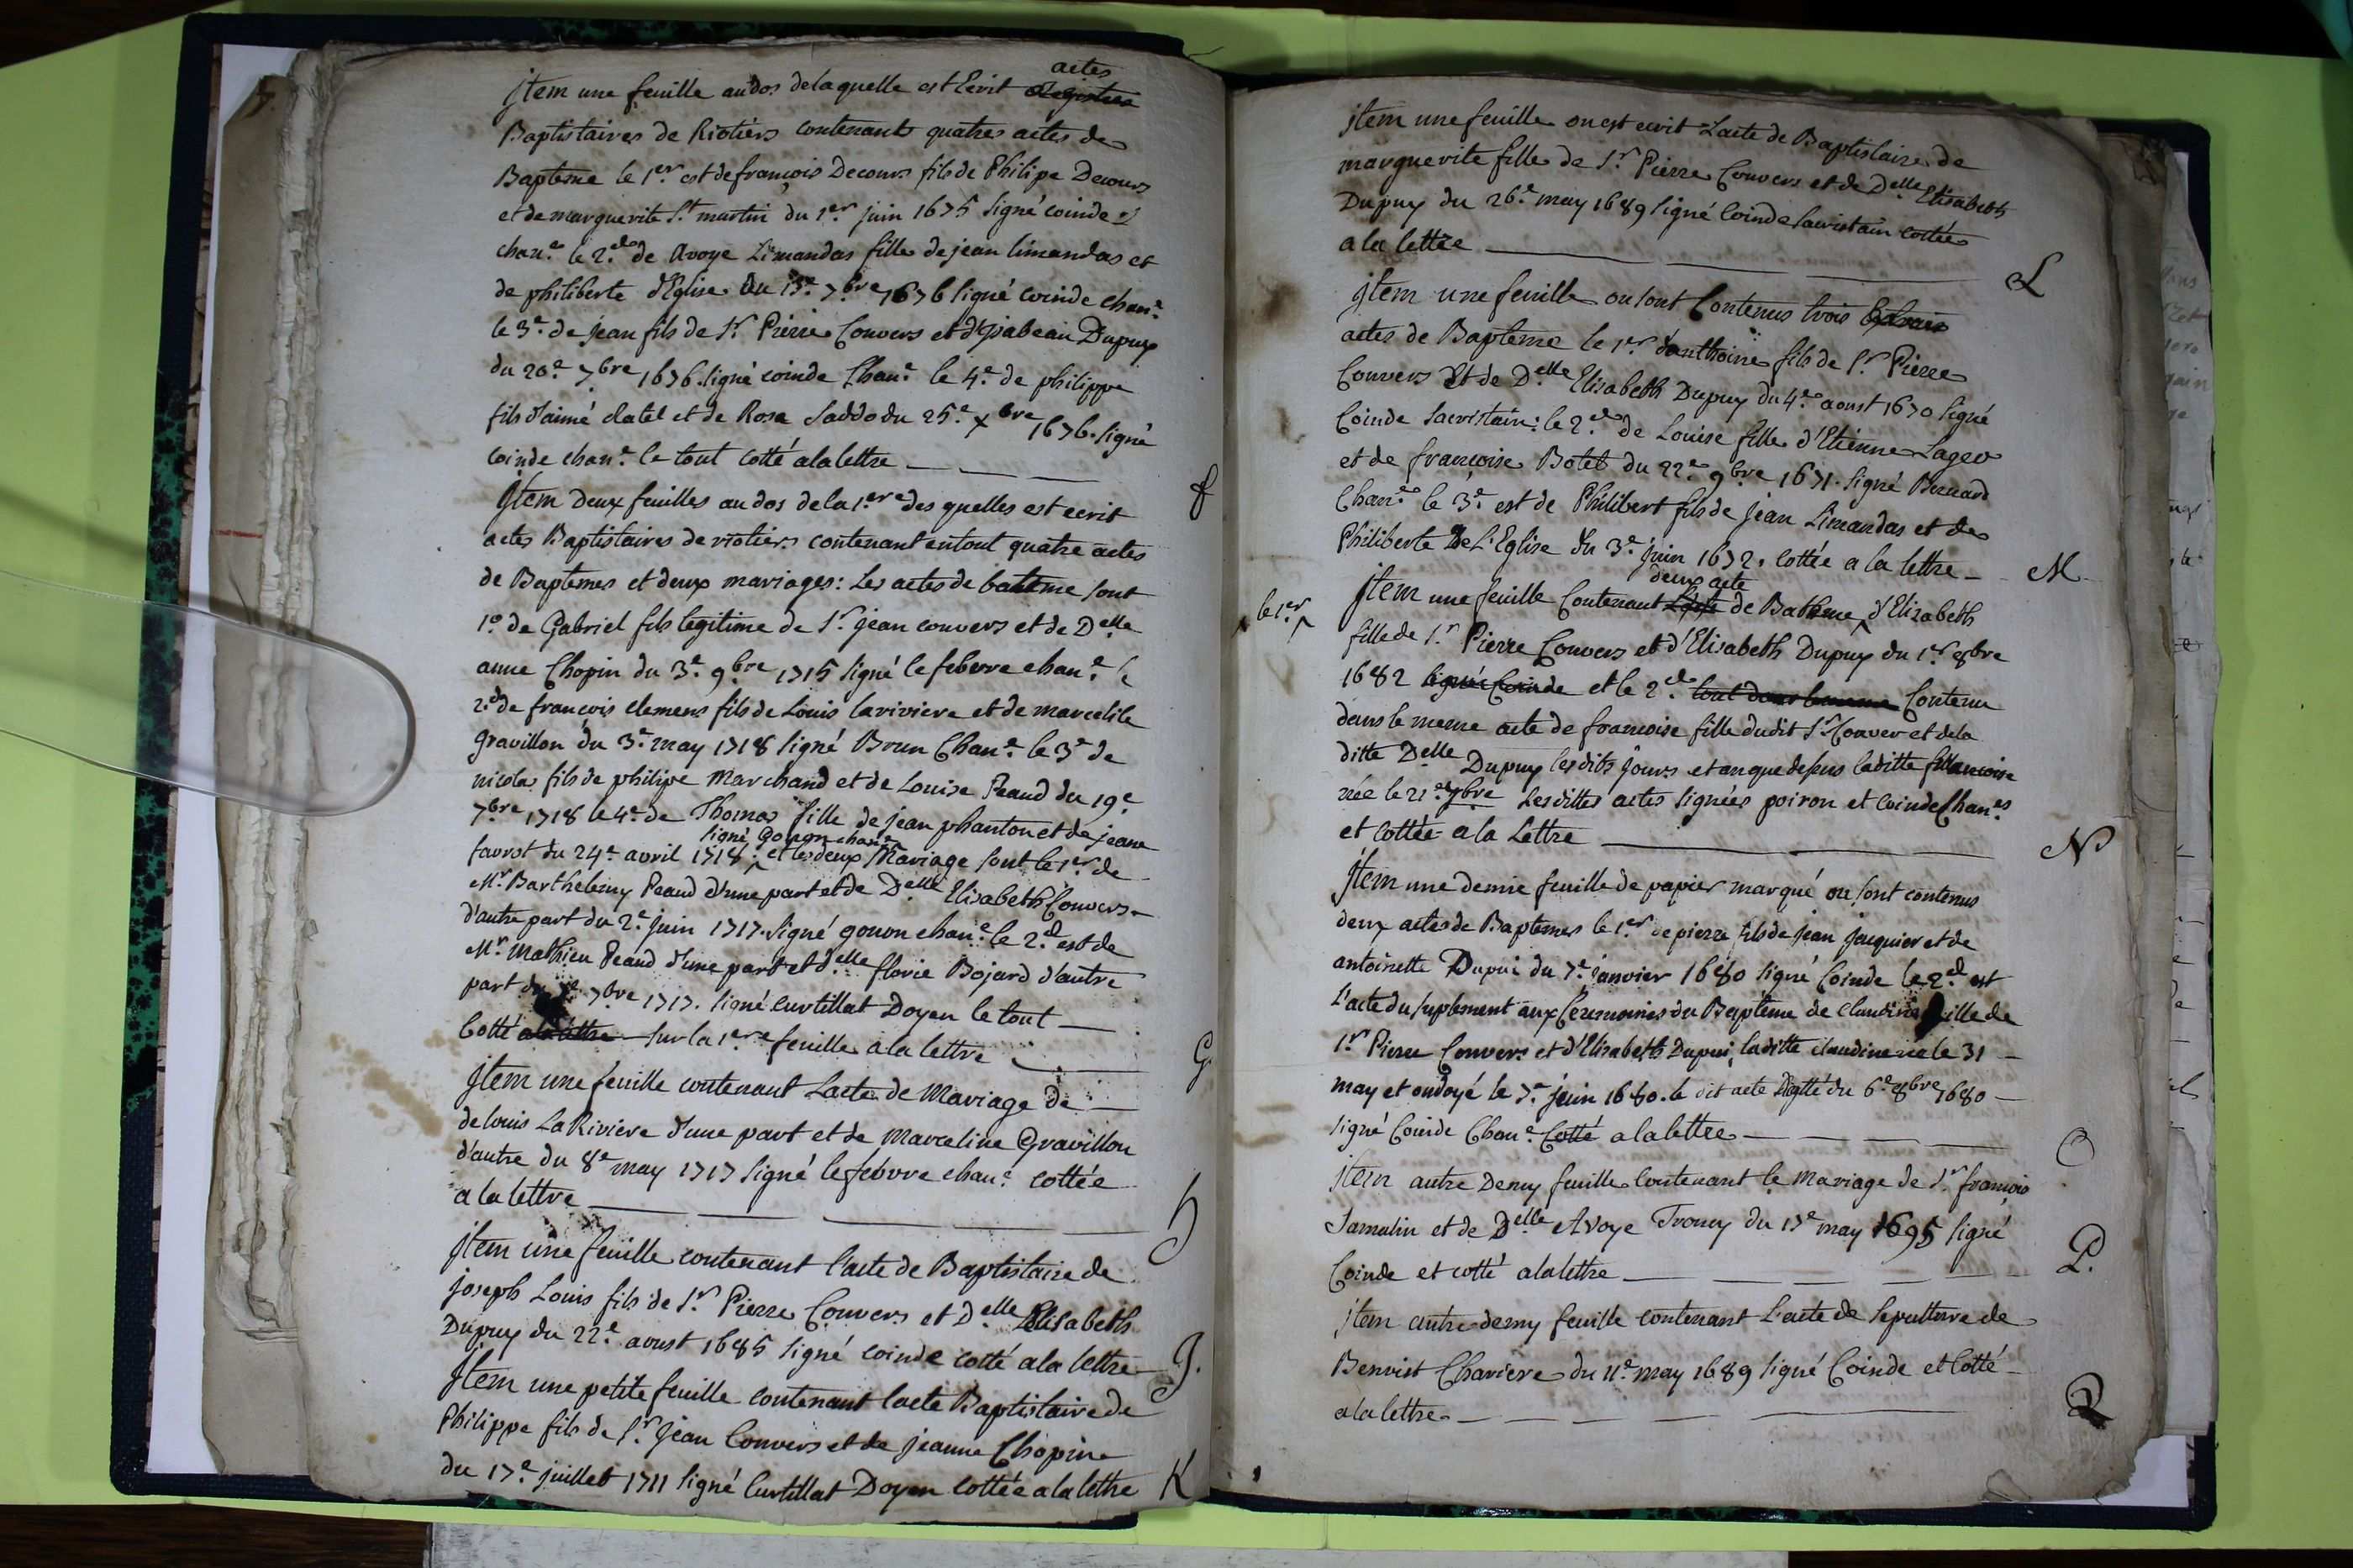 actes
jtem une feuille au dos de laquelle est Ecrit Registres
Baptistaires de Riotiers contenant quatres actes de
Bapteme le 1er. est de françois Decours fils de Philipe Decours
et de marguerite St. martin du 1er. juin 1675 signé coinde
chane. le 2ed. de Avoye Limandas fille de jean limandas et
de philiberte d'Eglise du 13e. 7bre 1676 signé coinde chane.
le 3e. de jean fils de Sr. Pierre Convers et d'ysabeau Dupuy
du 20e. 7bre 1676. signé coinde Chane. le 4e. de philippe
fils d'aimé clatel et de Rose Saddo du 25e. xbre 1676. signé
coinde chane. le tout cotté a la lettre
f
Jtem Deux feuilles au dos de la 1ere des quelles est ecrit
actes Baptistaires de riotiers contenant en tout quatre actes
de Baptemes et deux mariages: Les actes de bateme sont
1o. de Gabriel fils legitime de Sr. jean convers et de Delle
anne Chopin du 3e. 9bre 1715 signé lefebvre chane. le
2ed. de françois clemens fils de Louis lariviere et de marcelile
gravillon du 3e. may 1718 signé Brun Chane. le 3e de
nicolas fils de philipe Marchand et de Louise Peaud du 19e
7bre 1718 le 4e. de Thomas fille de jean phanton et de jeane
signé Gonon chane
favrot du 24e. avril 1718. et les deux Mariage sont le 1er. de
Mr. Barthelemy Peaud d'une part et de Delle Elisabeth Convers
d'autre part du 2e. juin 1717. signé gonon chane. le 2ed. est de
Mr. Mathieu Peaud d'une part et Delle florie Bojard d'autre
part du 7bre 1717. signé curtillat Doyen le tout
Cotté a la lettre sur la 1ere feuille a la lettre
G
jtem une feuille contenant Lacte de Mariage de
de louis La Riviere d'une part et de Marceline Gravillon
d'autre du 8e may 1717 signé lefebvre chane. cottée
a la lettre
h
jtem une feuille contenant l'acte de Baptistaire de
joseph Louis fils de Sr. Pierre Convers et Delle Elisabeth
Dupuy du 22e. aoust 1685 signé coinde cotté a la lettre
J.
Jtem une petite feuille contenant lacte Baptistaire de
Philippe fils de Sr. Jean Convers et de jeanne Chopine
du 17e. juillet 1711 signé Curtillat Doyen cottée a la lettre
K
jtem une feuille ou est ecrit Lacte de Baptistaire de
marguerite fille de Sr. Pierre Convers et de Delle Elisabeth
Dupuy du 26e. may 1689 signé Coinde sacristain cottée
a la lettre
L
jtem une feuille ou sont Contenus trois Extrais
actes de Bapteme le 1er. d'anthoine fils de Sr. Pierre
Convers et de Delle Elisabeth Dupuy du 4e. aoust 1670 signé
Coinde Sacristain: le 2ed. de Louise fille d'Etienne Lageo
et de françoise Botet du 22e 9bre 1671. signé Bernard
Chane. le 3e. est de Philibert fils de jean Limandas et de
Philiberte De L'Eglise du 3e. juin 1672. cottée a la lettre
M
deux acte
le 1er.
jtem une feuille Contenant de Bateme d'Elizabeth
fille de Sr. Pierre Convers et d'Elisabeth Dupuy du 1er. 8bre
1682 signé Coinde et le 2ed. Contenu
dans le meme acte de françoise fille dudit Sr. Conver et de la
ditte Delle Dupuy lesdits jours et an que dessus laditte françoise
née le 21e. 7bre Lesdittes actes signées poiron et coinde Chanes
et cottée a la Lettre
N
jtem une demie feuille de papier marqué ou sont contenus
deux actes de Baptemes le 1er de pierre fils de jean jacquier et de
antoinette Dupui du 7e. janvier 1680 signé Coinde le 2ed. est
L'acte du suplement aux Ceremonies du Bapteme de Claudine fille de
Sr. Pierre Convers et d'Elisabeth Dupui, laditte claudine née le 31
may et ondoyé le 7e. juin 1680. le dit acte datté du 6e. 8bre 1680
signé Coinde Chane. Cotté a la lettre
O
jtem autre Demy feuille Contenant le Mariage de Sr. françois
Jamulin et de Delle Avoye Trouvy du 13e may 1695 signé
Coinde et cotté a la lettre
P.
jtem autre demy feuille contenant L'acte de Sepulture de
Benoist Chariere du 11e. may 1689 signé Coinde et Cotté
a la lettre
Q